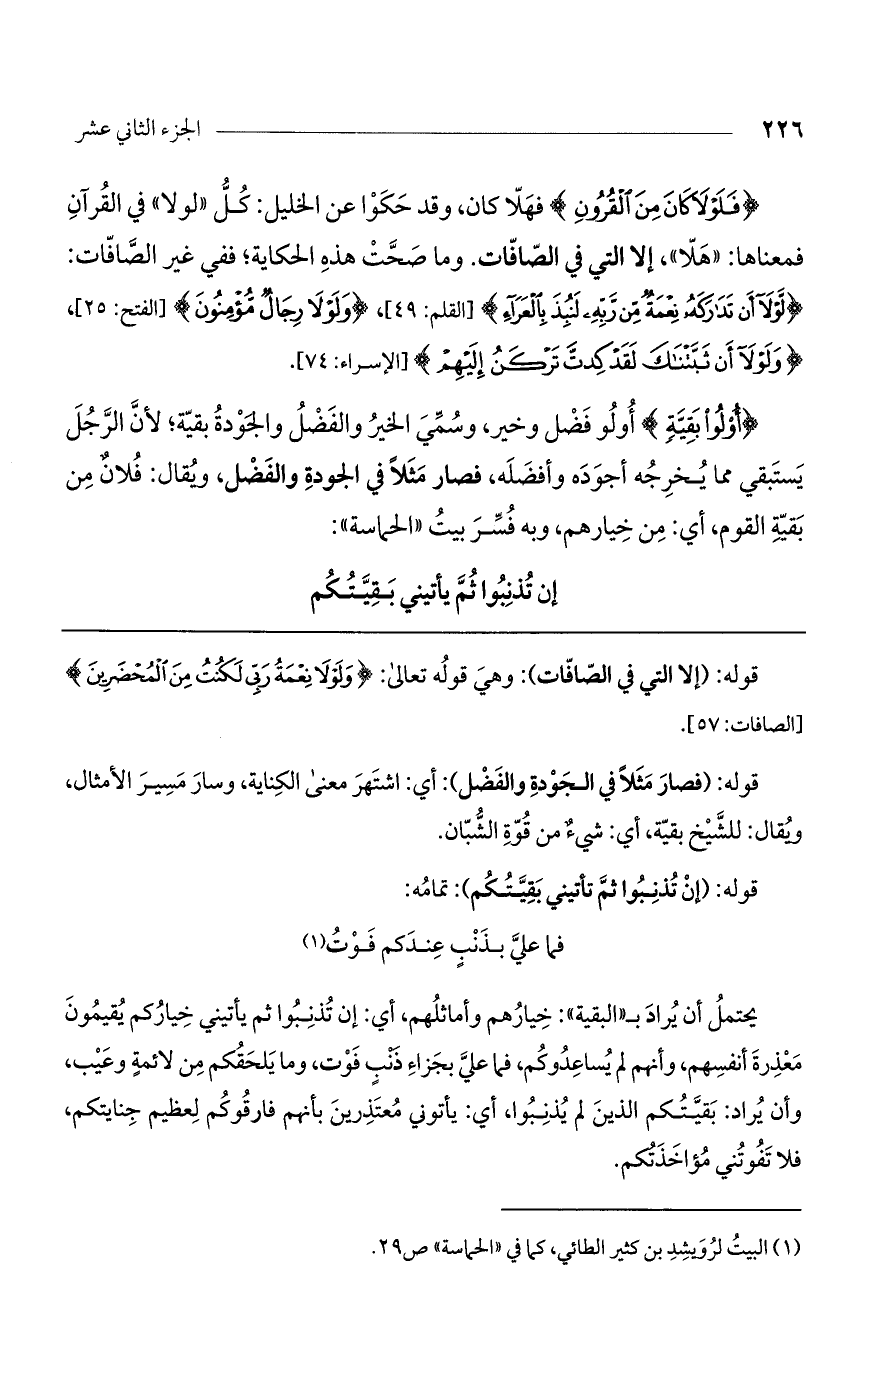 ٢٢٦ الجزء الثاني عشر
﴿فَلَوْلَا كَانَ مِنَ ٱلْقُرُونِ﴾ فهَلّا كان، وقد حَكَوْا عن الخليل: كُلُّ «لولا» في القُرآنِ
فمعناها: «هَلّا»، إلا التي في الصّافّات. وما صَحَّتْ هذهِ الحكاية؛ ففي غير الصَّافّات:
﴿لَّوْلَآ أَن تَدَٰرَكَهُۥ نِعْمَةٌ مِّن رَّبِّهِۦ لَنُبِذَ بِٱلْعَرَآءِ﴾ [القلم: ٤٩]، ﴿وَلَوْلَا رِجَالٌ مُّؤْمِنُونَ﴾ [الفتح: ٢٥]،
﴿وَلَوْلَآ أَن ثَبَّتْنَٰكَ لَقَدْ كِدتَّ تَرْكَنُ إِلَيْهِمْ﴾ [الإسراء: ٧٤].
﴿أُوْلُواْ بَقِيَّةٍ﴾ أُولُو فَضْل وخير، وسُمِّيَ الخيرُ والفَضْلُ والجَوْدةُ بقيّة؛ لأنَّ الرَّجُلَ
يَستَبقي مما يُـخرِجُه أجوَدَه وأفضَلَه، فصار مَثَلاً في الجودةِ والفَضْل، ويُقال: فُلانٌ مِن
بَقيّةِ القوم، أي: مِن خِيارهم، وبه فُسِّـرَ بيتُ «الحماسة»:
إن تُذنِبُوا ثُمَّ يأتيني بَـقِيَّـتُـكُم
قوله: (إلا التي في الصّافّات): وهيَ قولُه تعالىٰ: ﴿وَلَوْلَا نِعْمَةُ رَبِّى لَكُنتُ مِنَ ٱلْمُحْضَرِينَ﴾
[الصافات: ٥٧].
قوله: (فصارَ مَثَلاً في الـجَوْدةِ والفَضْل): أي: اشتَهرَ معنىٰ الكِناية، وسارَ مَسِيـرَ الأمثال،
ويُقال: للشَّيْخ بقيّة، أي: شيءٌ من قُوّةِ الشُّبّان.
قوله: (إنْ تُذنِـبُوا ثمَّ تأتيني بَقِيَّـتُـكُم): تمامُه:
فما عليَّ بـذَنْبٍ عِنـدَكم فَـوْتُ(١)
يحتملُ أن يُرادَ بـ«البقية»: خِيارُهم وأماثلُهم، أي: إن تُذنِـبُوا ثم يأتيني خِيارُكم يُقيمُونَ
مَعْذِرةَ أنفسِهم، وأنهم لم يُساعِدُوكُم، فما عليَّ بجَزاءِ ذَنْبٍ فَوْت، وما يَلحَقُكم مِن لائمةٍ وعَيْب،
وأن يُراد: بَقيَّـتُـكم الذينَ لم يُذنِـبُوا، أي: يأتوني مُعتَذِرينَ بأنهم فارقُوكُم لِعظيم جِنايتكم،
فلا تَفُوتُني مُؤاخَذَتُكم.
(١) البيتُ لرُوَيشِدِ بن كثير الطائي، كما في «الحماسة» ص٢٩.